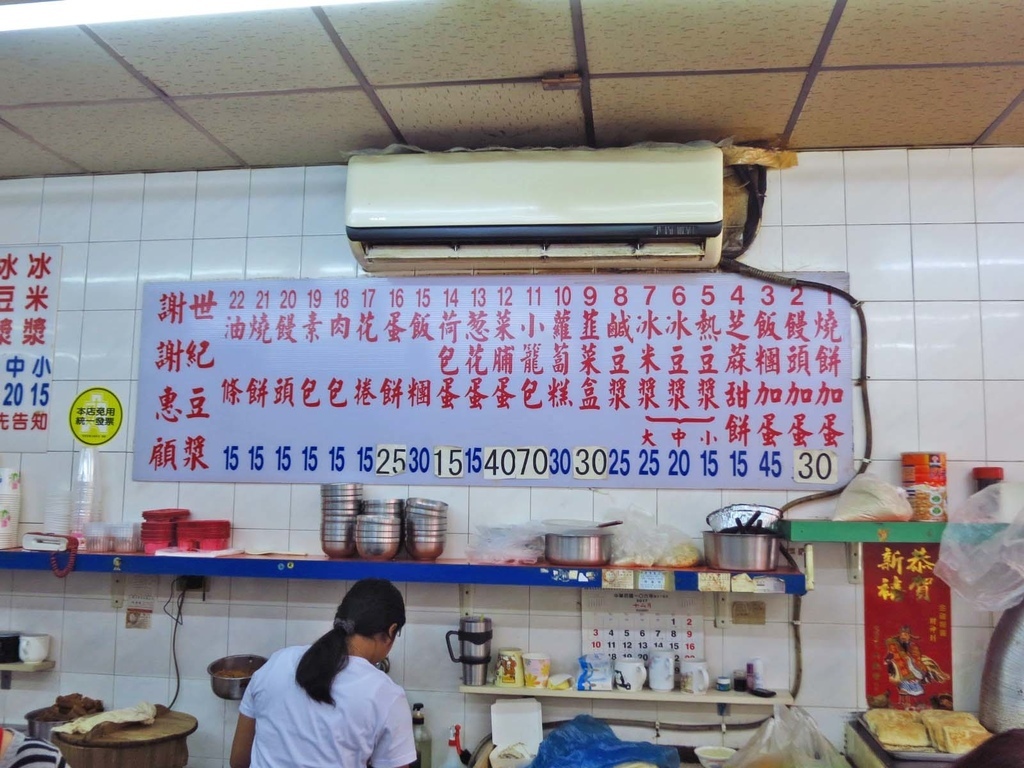 1 燒餅加蛋
2 饅頭加蛋 30
3 飯糰加蛋 45
4 芝蔴甜餅 15
5 熱豆漿 小 15
6 冰豆漿 中 20
7 冰米漿 大 25
8 鹹豆漿 25
9 韮菜盒 30
10 蘿蔔糕 30
11 小籠包 70
12 菜脯蛋 40
13 葱花蛋 15
14 荷包蛋 15
15 飯糰 30
16 蛋餅 25
17 花捲 15
18 肉包 15
19 素包 15
20 饅頭 15
21 燒餅 15
22 油條 15
世紀豆漿
謝謝惠顧
冰米漿 小 15
冰豆漿 中 20
先告知
本店免用
統一發票
恭賀
新禧
2017
1 2
3 4 5 6 7 8 9
10 11 12 13 14 15 16